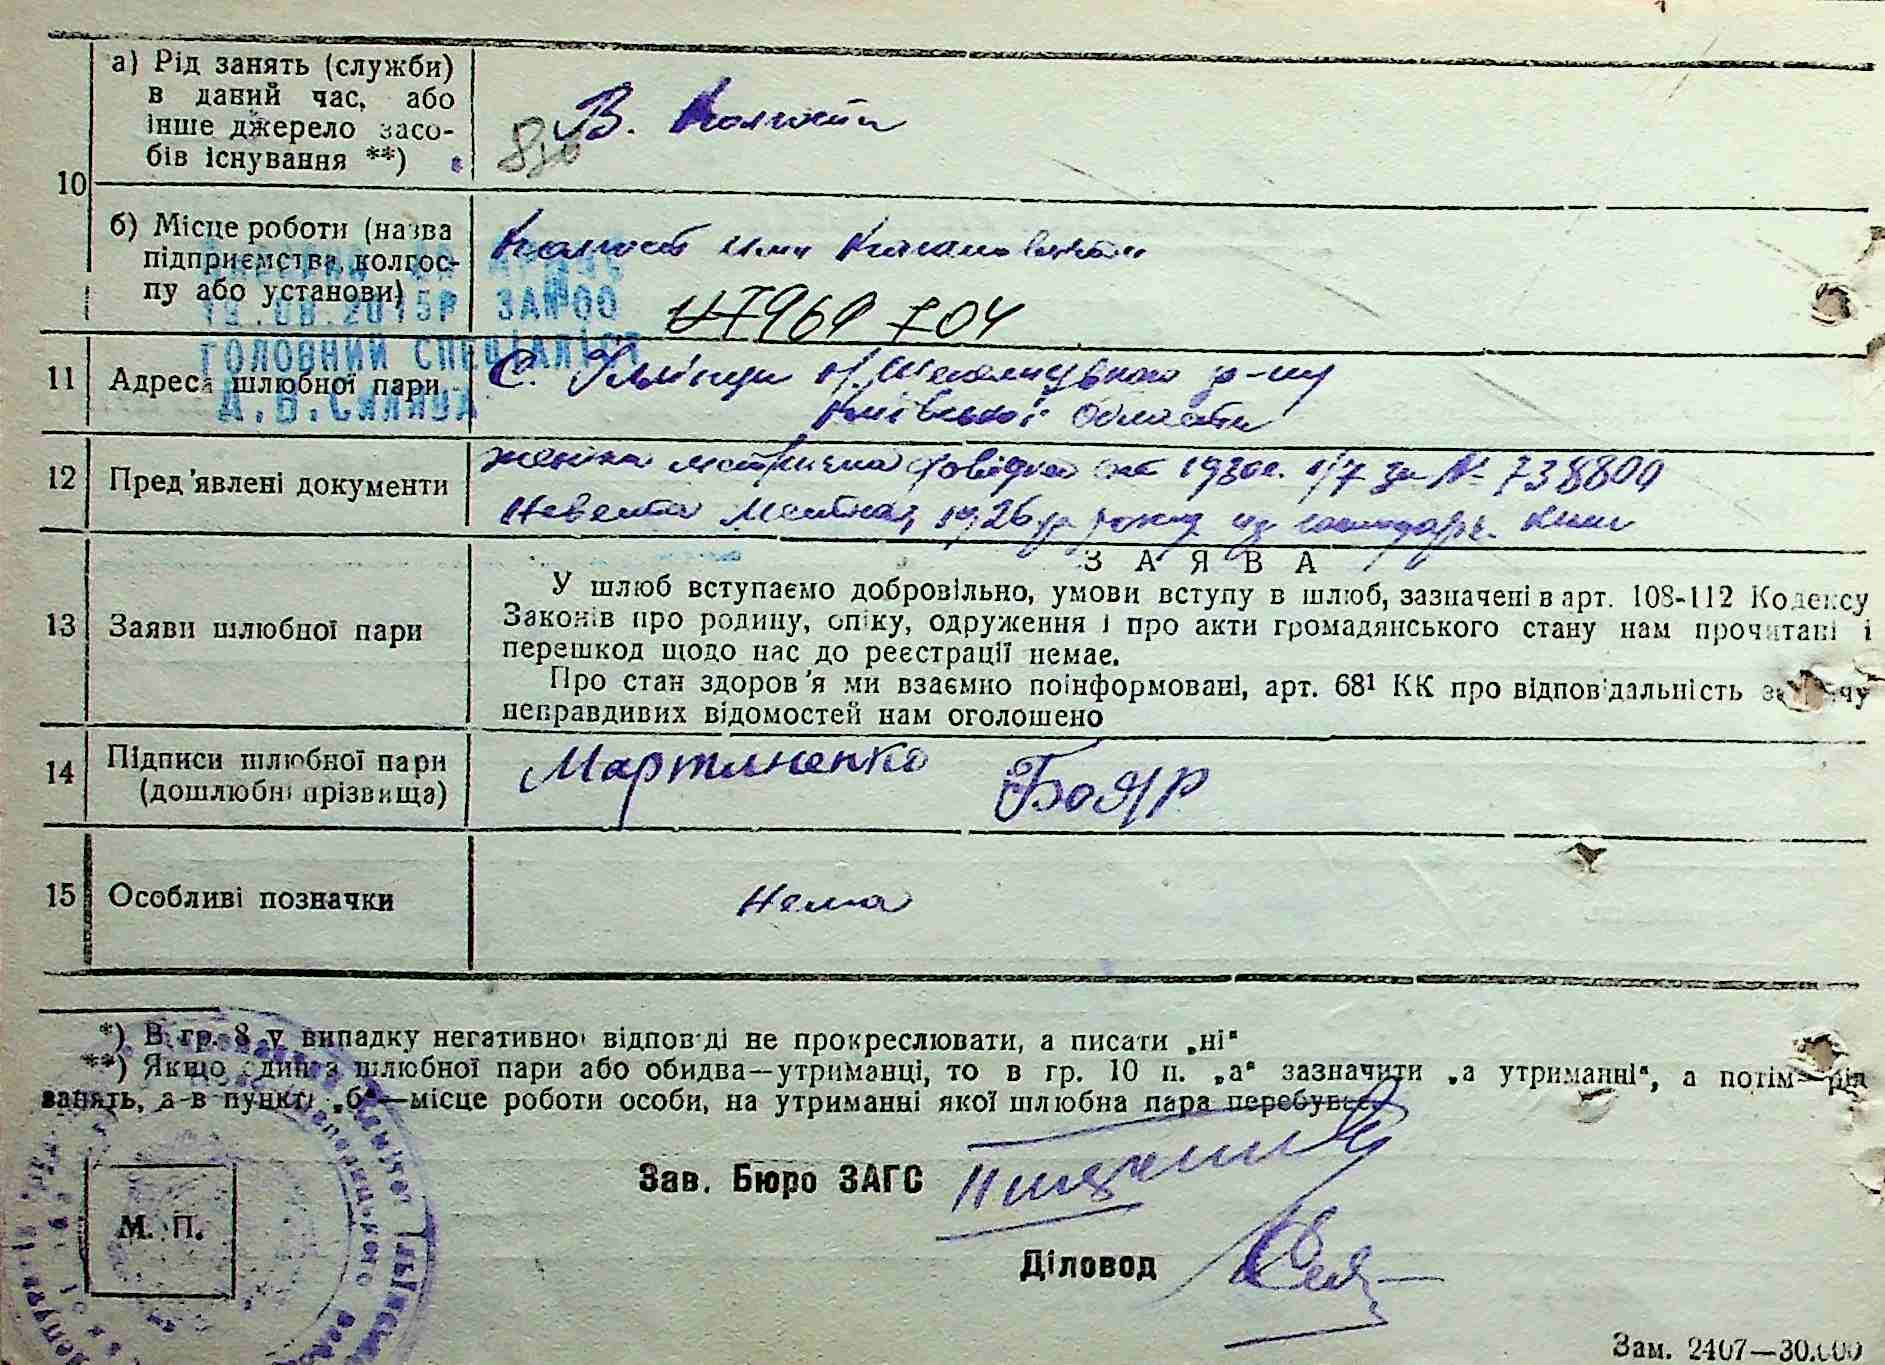 10
а) Рід занять (служби)
в даний час, або
інше джерело засо-
бів існування **)
В. Колгоспі
б) Місце роботи (назва
підприємства, колгос-
пу або установи)
Колгосп
704
12.08.2015Р ЗАГ00
ГОЛОВНИЙ СПЕЦІАЛІСТ
11 Адреса шлюбної пари
С. р-ну
Київської області
12 Пред'явлені документи
жениха метрична довідка 1930 за № 738800
Невеста 1926 р.
13 Заяви шлюбної пари
ЗАЯВА
У шлюб вступаємо добровільно, умови вступу в шлюб, зазначені в арт. 108-112 Кодексу
Законів про родину, опіку, одруження і про акти громадянського стану нам прочитані і
перешкод щодо нас до реєстрації немає.
Про стан здоров'я ми взаємно поінформовані, арт. 68¹ КК про відповідальність за
неправдивих відомостей нам оголошено
14 Підписи шлюбної пари
(дошлюбні прізвища)
Мартиненко Бояр
15 Особливі позначки
Нема
*) В гр. 8 у випадку негативної відповіді не прокреслювати, а писати „ні“
**) Якщо один з шлюбної пари або обидва—утриманці, то в гр. 10 п. „а“ зазначити „а утриманні“, а потім рід
занять, а в пункті „б“—місце роботи особи, на утриманні якої шлюбна пара перебуває.
Зав. Бюро ЗАГС
М. П.
Діловод
Зам. 2407—30.000